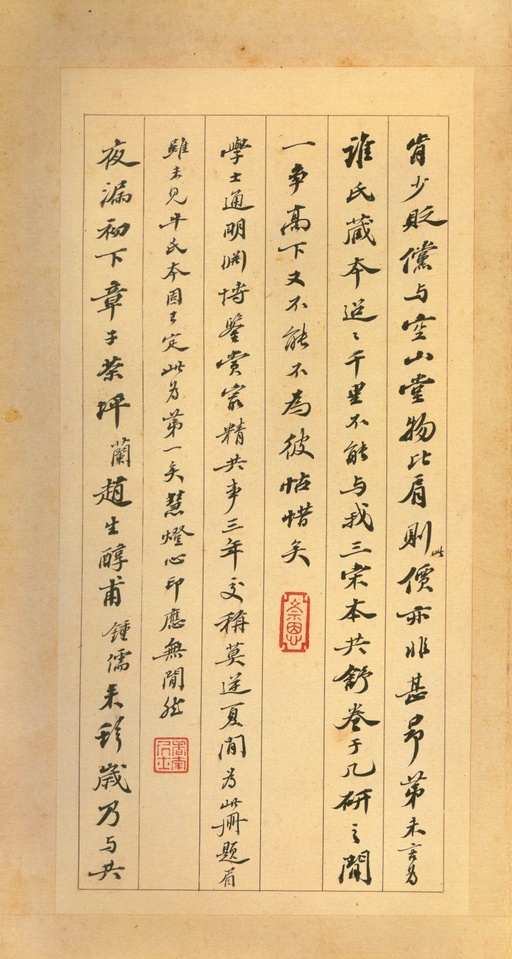 肯少貶儻与空山堂物比肩則此價亦非甚昂第未言為
誰氏藏本迢〻千里不能与我三宋本共舒卷于几研之間
一爭高下又不能不為彼帖惜矣
崇恩
學士通明渊博鑒賞冣精共事三年交稱莫逆夏間為此冊題眉
雖未見牛氏本固已定此為第一矣慧燈心印應無閒然
香南居士
夜漏初下章子荣坪蘭趙生醇甫鍾儒来歲乃与共